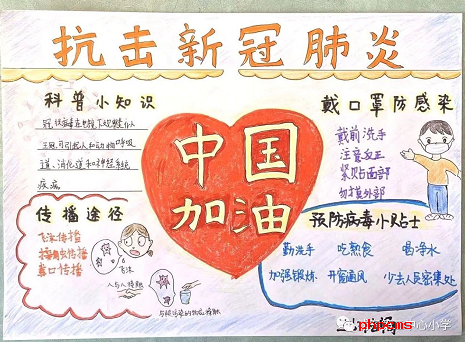 抗击新冠肺炎
科普小知识
冠状病毒在电镜下观察似
王冠,可引起人和动物呼吸
道、消化道和神经系统
疾病
戴口罩防感染
戴前洗手
注意反正
紧贴面部
勿摸外部
中国
加油
传播途径
飞沫传播
接触传播
粪口传播
飞沫
人与人接触
预防病毒小贴士
勤洗手 吃熟食 喝净水
加强锻炼 开窗通风 少去人员密集处
中心小学
phpcms